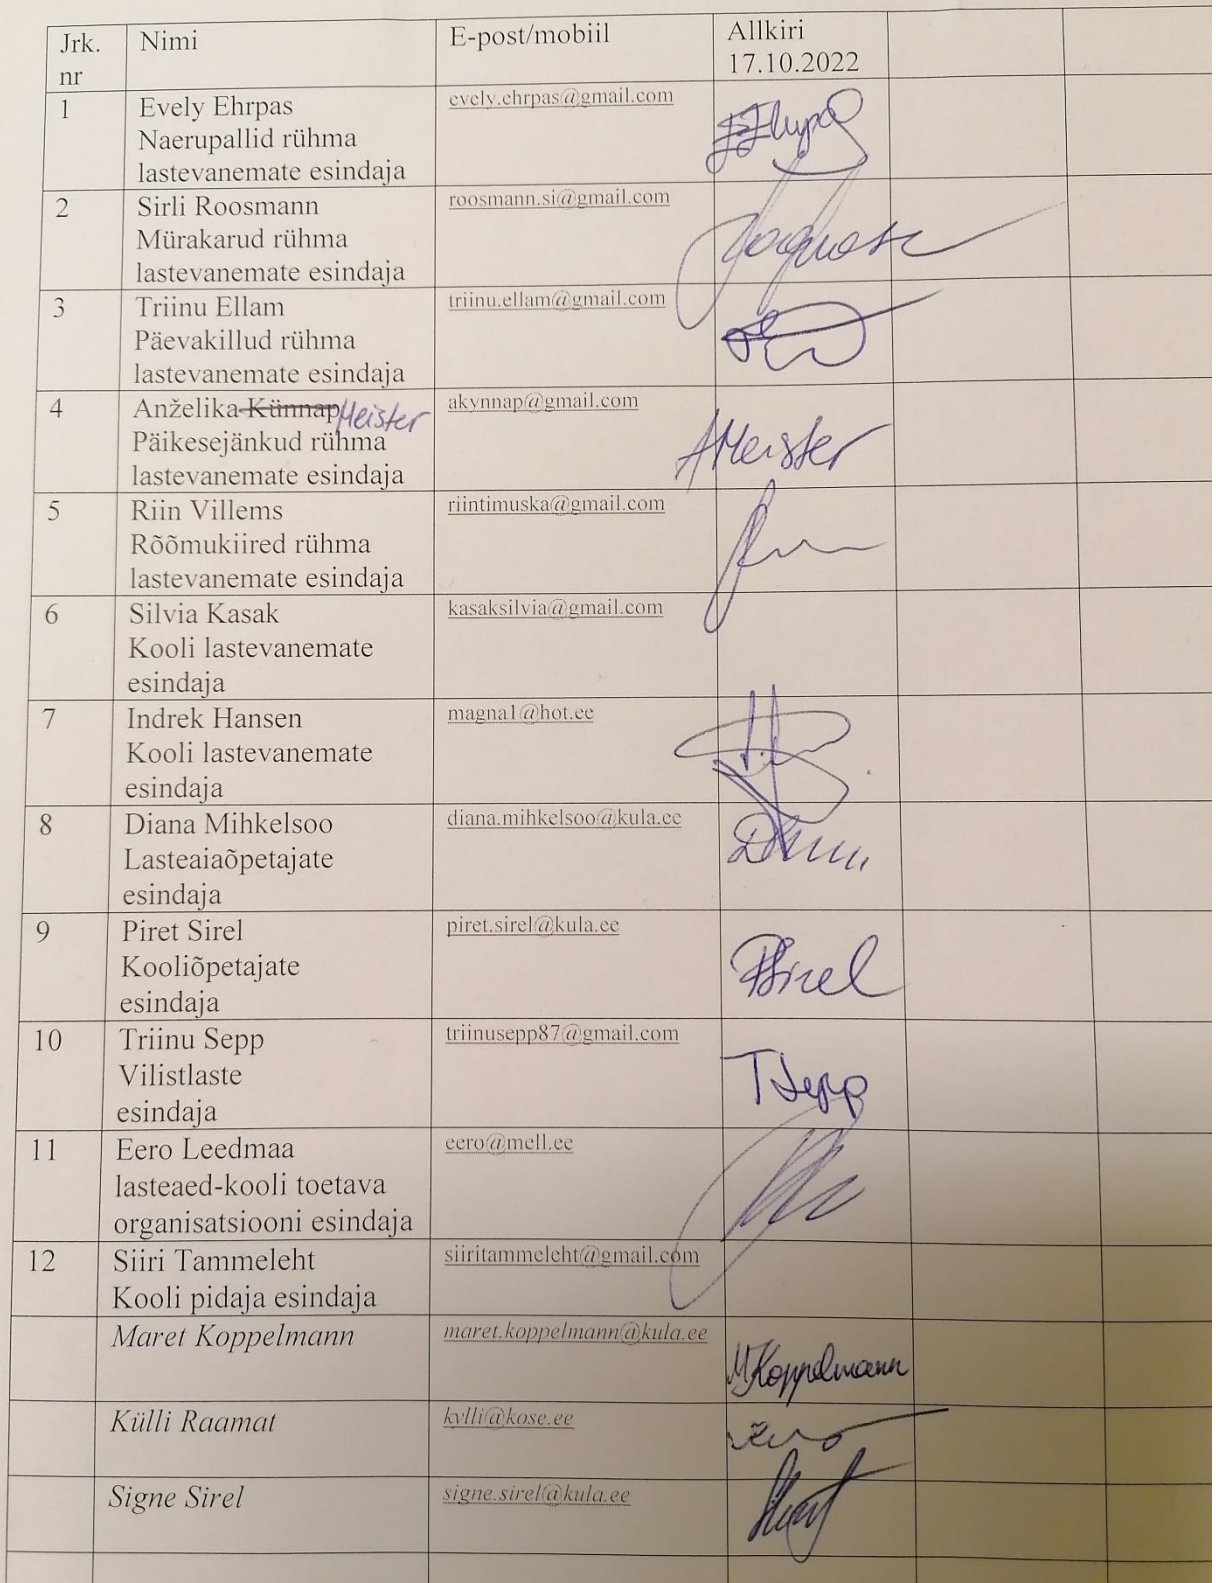 Jrk. nr
Nimi
E-post/mobiil
Allkiri
17.10.2022
1
Evely Ehrpas
Naerupallid rühma
lastevanemate esindaja
evely.ehrpas@gmail.com
2
Sirli Roosmann
Mürakarud rühma
lastevanemate esindaja
roosmann.si@gmail.com
3
Triinu Ellam
Päevakillud rühma
lastevanemate esindaja
triinu.ellam@gmail.com
4
Anželika Künnap Meister
Päikesejänkud rühma
lastevanemate esindaja
akynnap@gmail.com
AMeister
5
Riin Villems
Rõõmukiired rühma
lastevanemate esindaja
riintimuska@gmail.com
6
Silvia Kasak
Kooli lastevanemate
esindaja
kasaksilvia@gmail.com
7
Indrek Hansen
Kooli lastevanemate
esindaja
magna1@hot.ee
8
Diana Mihkelsoo
Lasteaiaõpetajate
esindaja
diana.mihkelsoo@kula.ee
9
Piret Sirel
Kooliõpetajate
esindaja
piret.sirel@kula.ee
PSirel
10
Triinu Sepp
Vilistlaste
esindaja
triinusepp87@gmail.com
TSepp
11
Eero Leedmaa
lasteaed-kooli toetava
organisatsiooni esindaja
eero@mell.ee
12
Siiri Tammeleht
Kooli pidaja esindaja
siiritammeleht@gmail.com
Maret Koppelmann
maret.koppelmann@kula.ee
MKoppelmann
Külli Raamat
kylli@kose.ee
Signe Sirel
signe.sirel@kula.ee